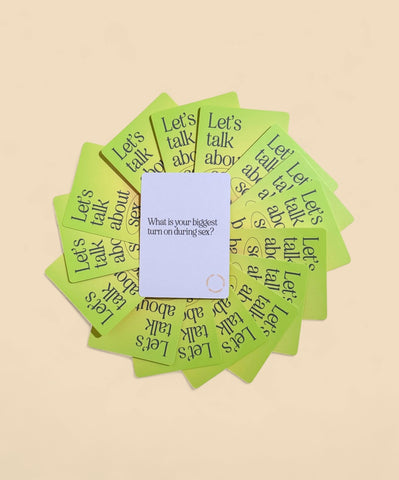 What is your biggest
turn on during sex?
Let's
talk
about
Let's
talk
Let's
talk
Let's
talk
about
sex
Let's
talk
about
Let's
talk
Let's
talk
Let's
talk
Let's
talk
Let's
talk
Let's
talk
Let's
talk
Let's
talk
about
Let's
talk